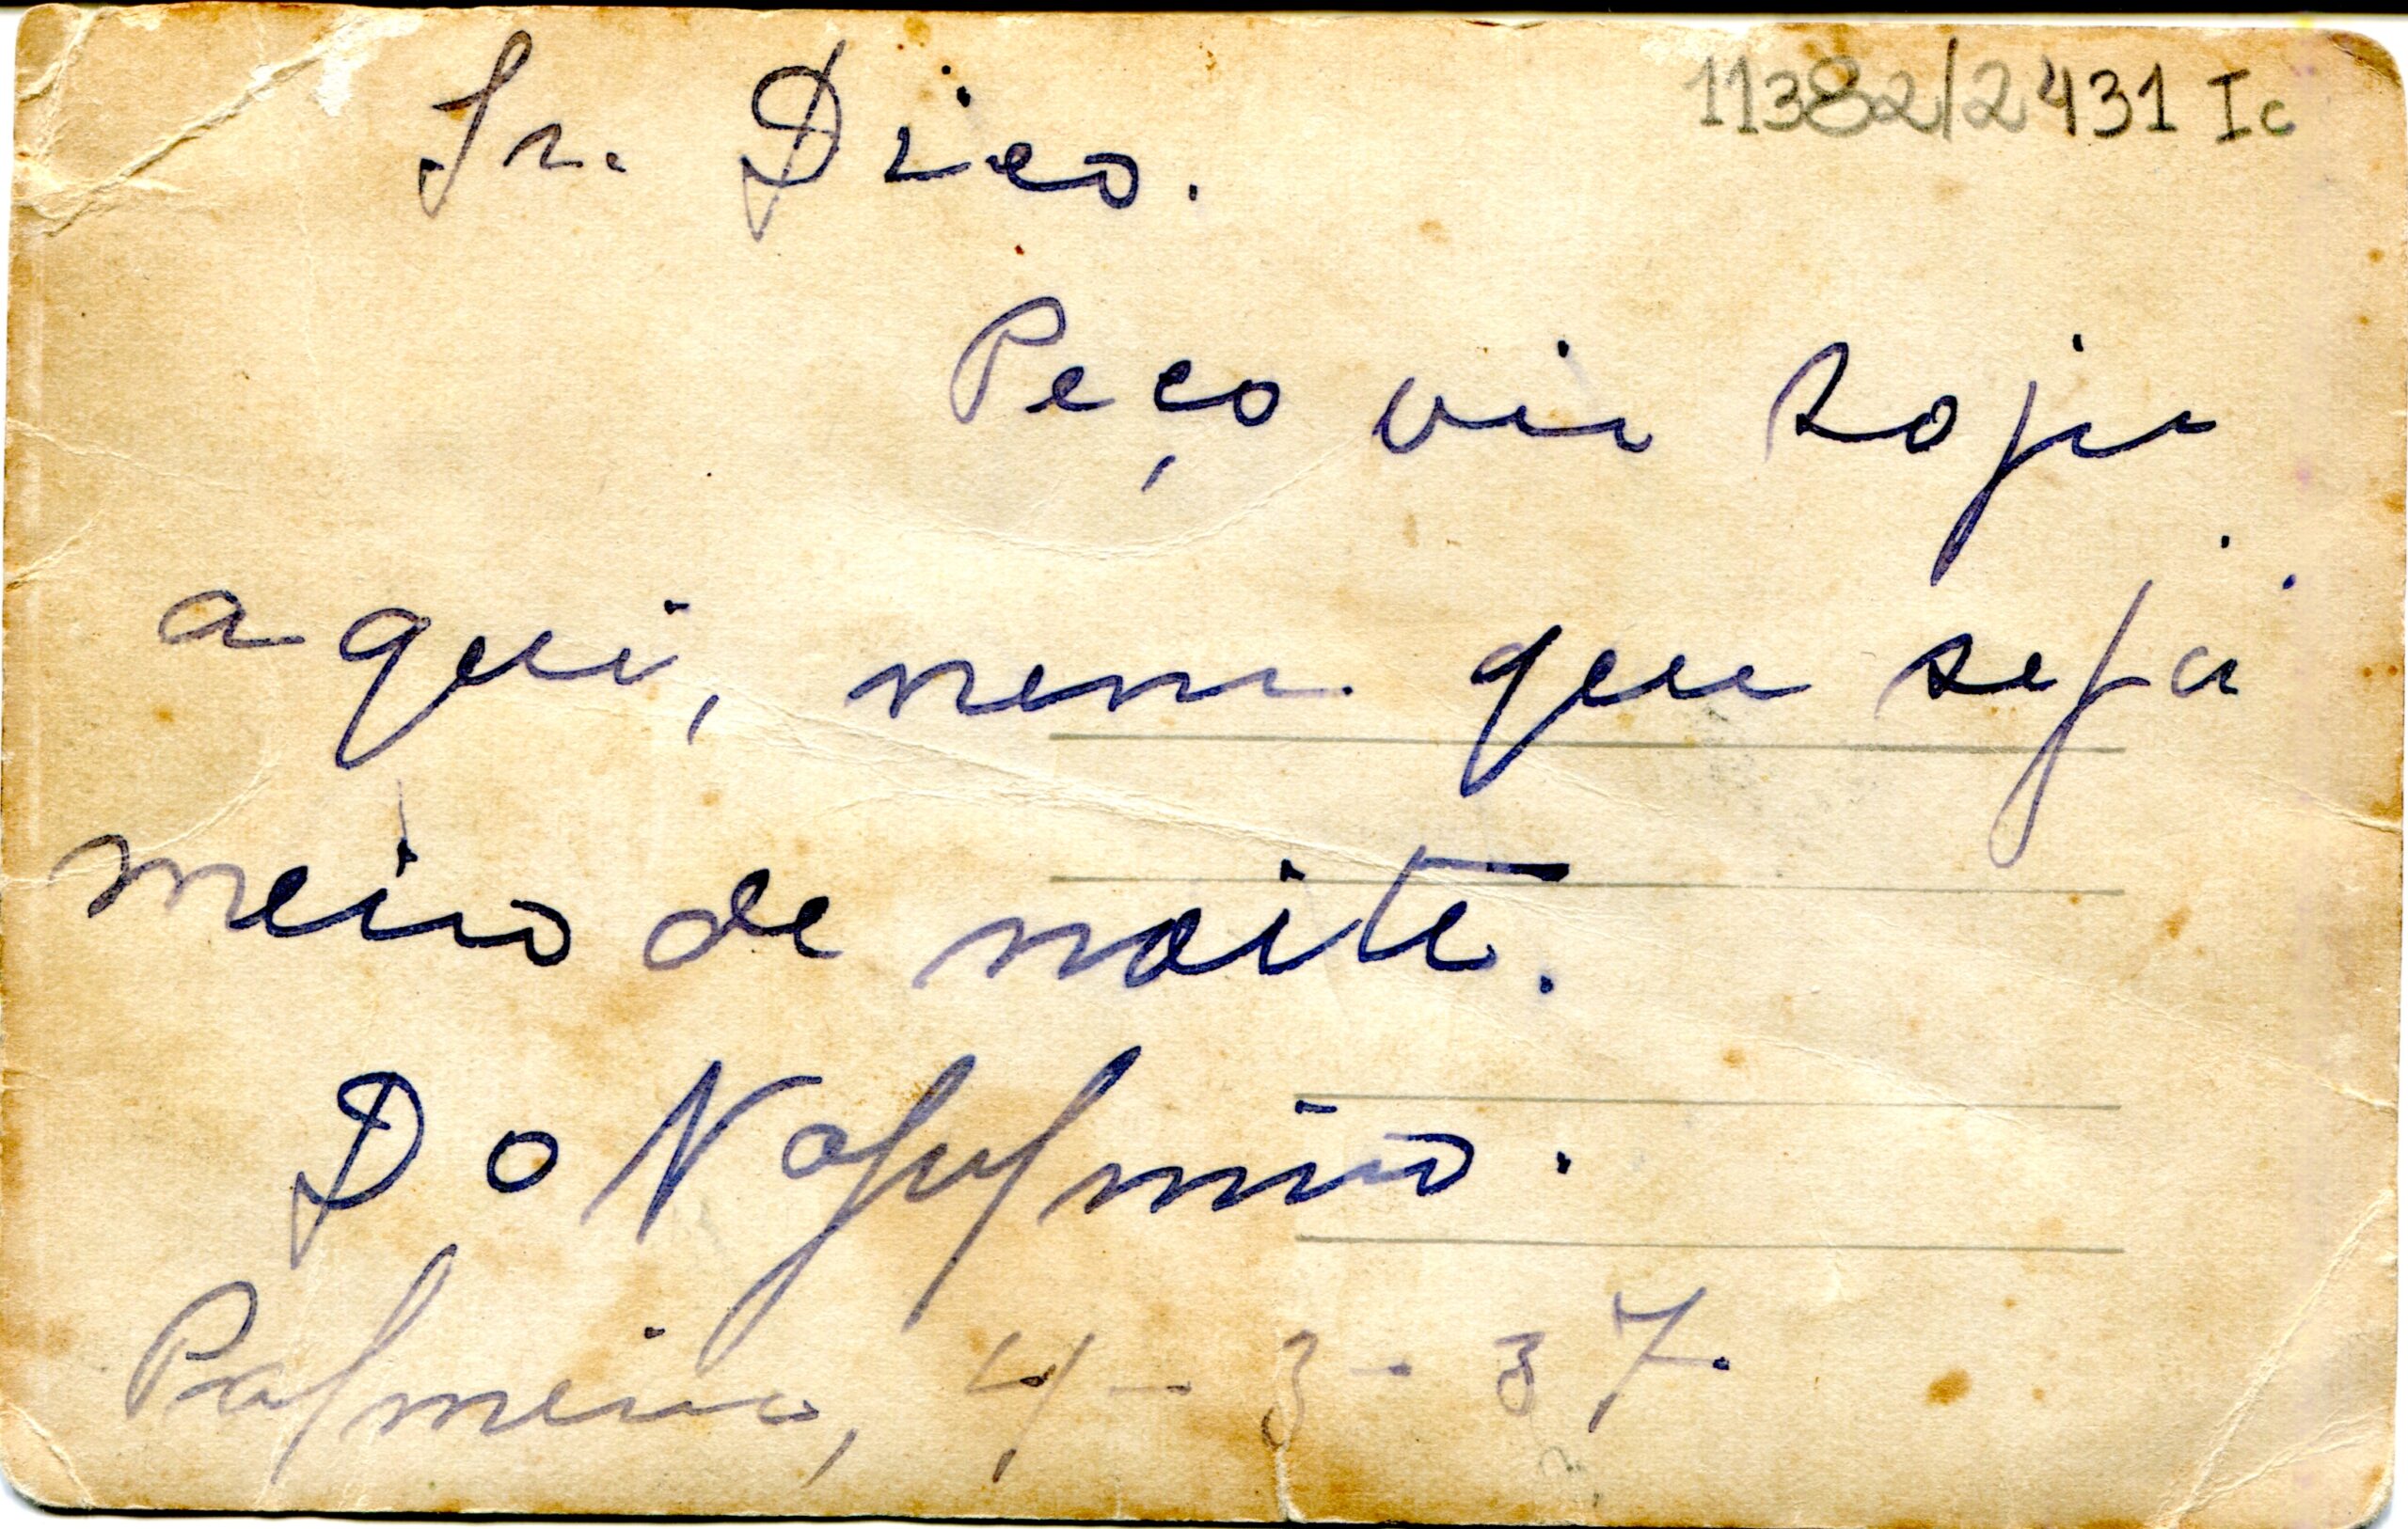 11382/2431 Ic
Sr. Drico.
Peço vir hoje
aqui, nem que seja
meio de noite.
Do
Palmeira, 4-3-37.